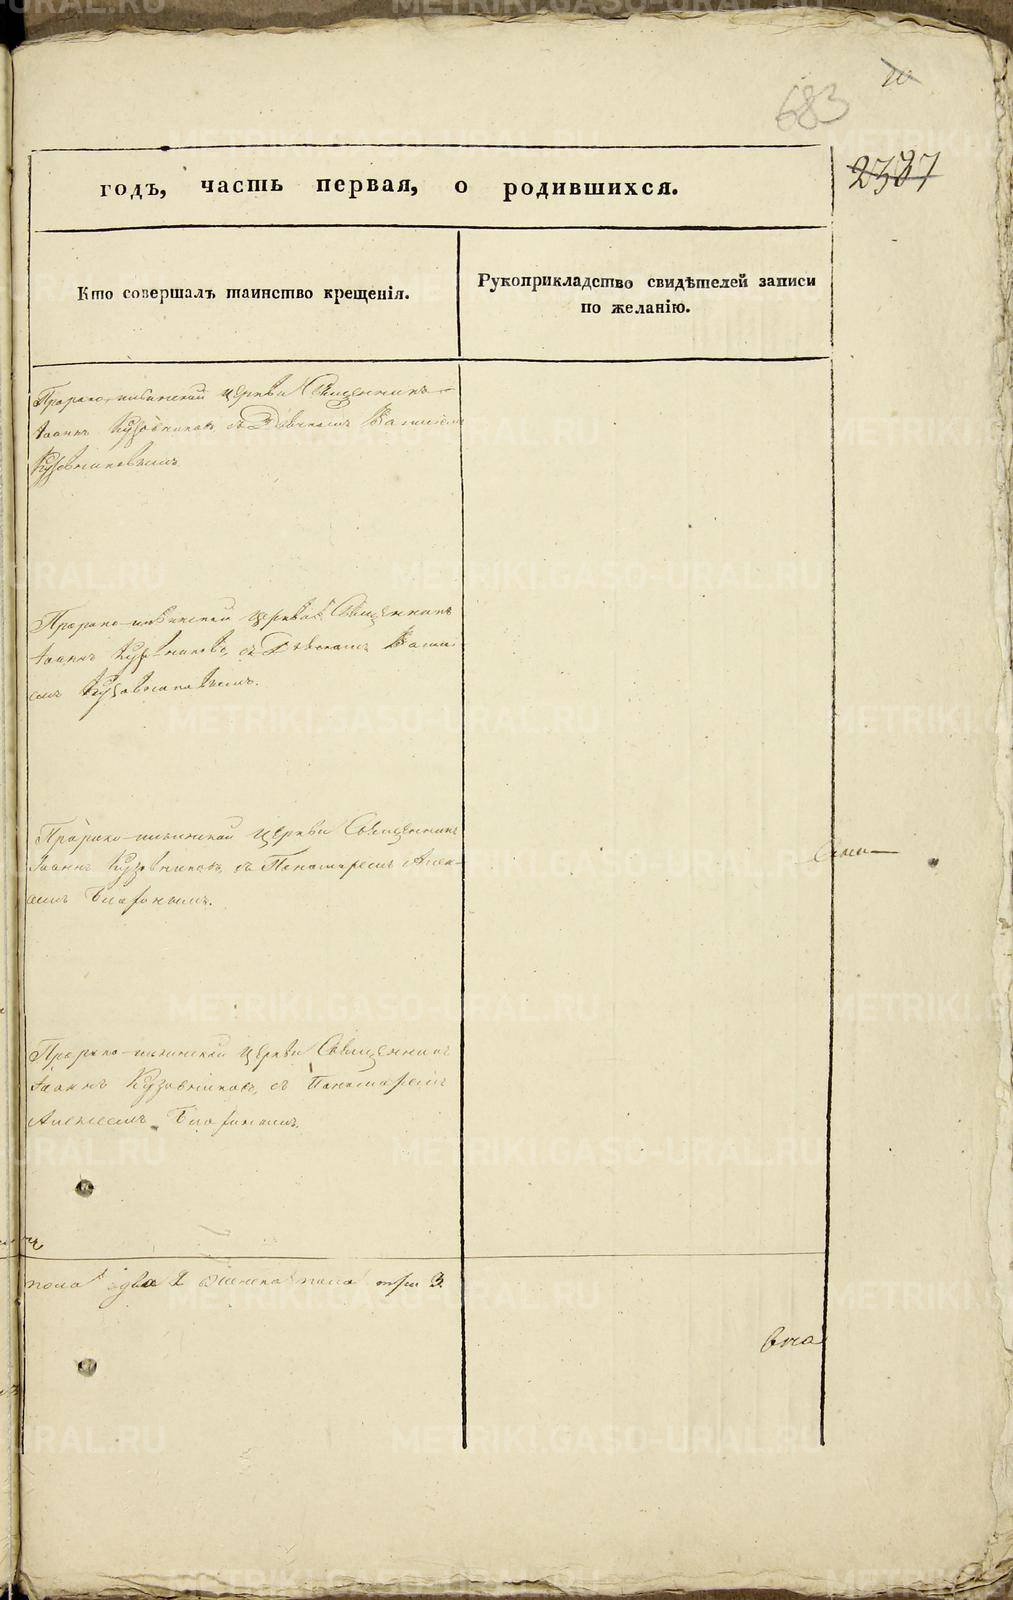 683
2337
годъ, часть первая, о родившихся.
Кто совершалъ таинство крещенія.
Рукоприкладство свидѣтелей записи
по желанію.
Пророко-ильинской церкви Священникъ
Іоаннъ Кузовниковъ съ Дьячкомъ
Кузовниковымъ
Пророко-ильинской церкви Священникъ
Іоаннъ Кузовниковъ, съ Дьячкомъ
Кузовниковымъ.
Пророко-ильинской церкви Священникъ
Іоаннъ Кузовниковъ, съ Пономаремъ Алек-
сѣемъ
Пророко-ильинской церкви Священникъ
Іоаннъ Кузовниковъ, съ Пономаремъ
Алексеемъ
пола два 2 женска пола три 3.
METRIKI.GASO-URAL.RU